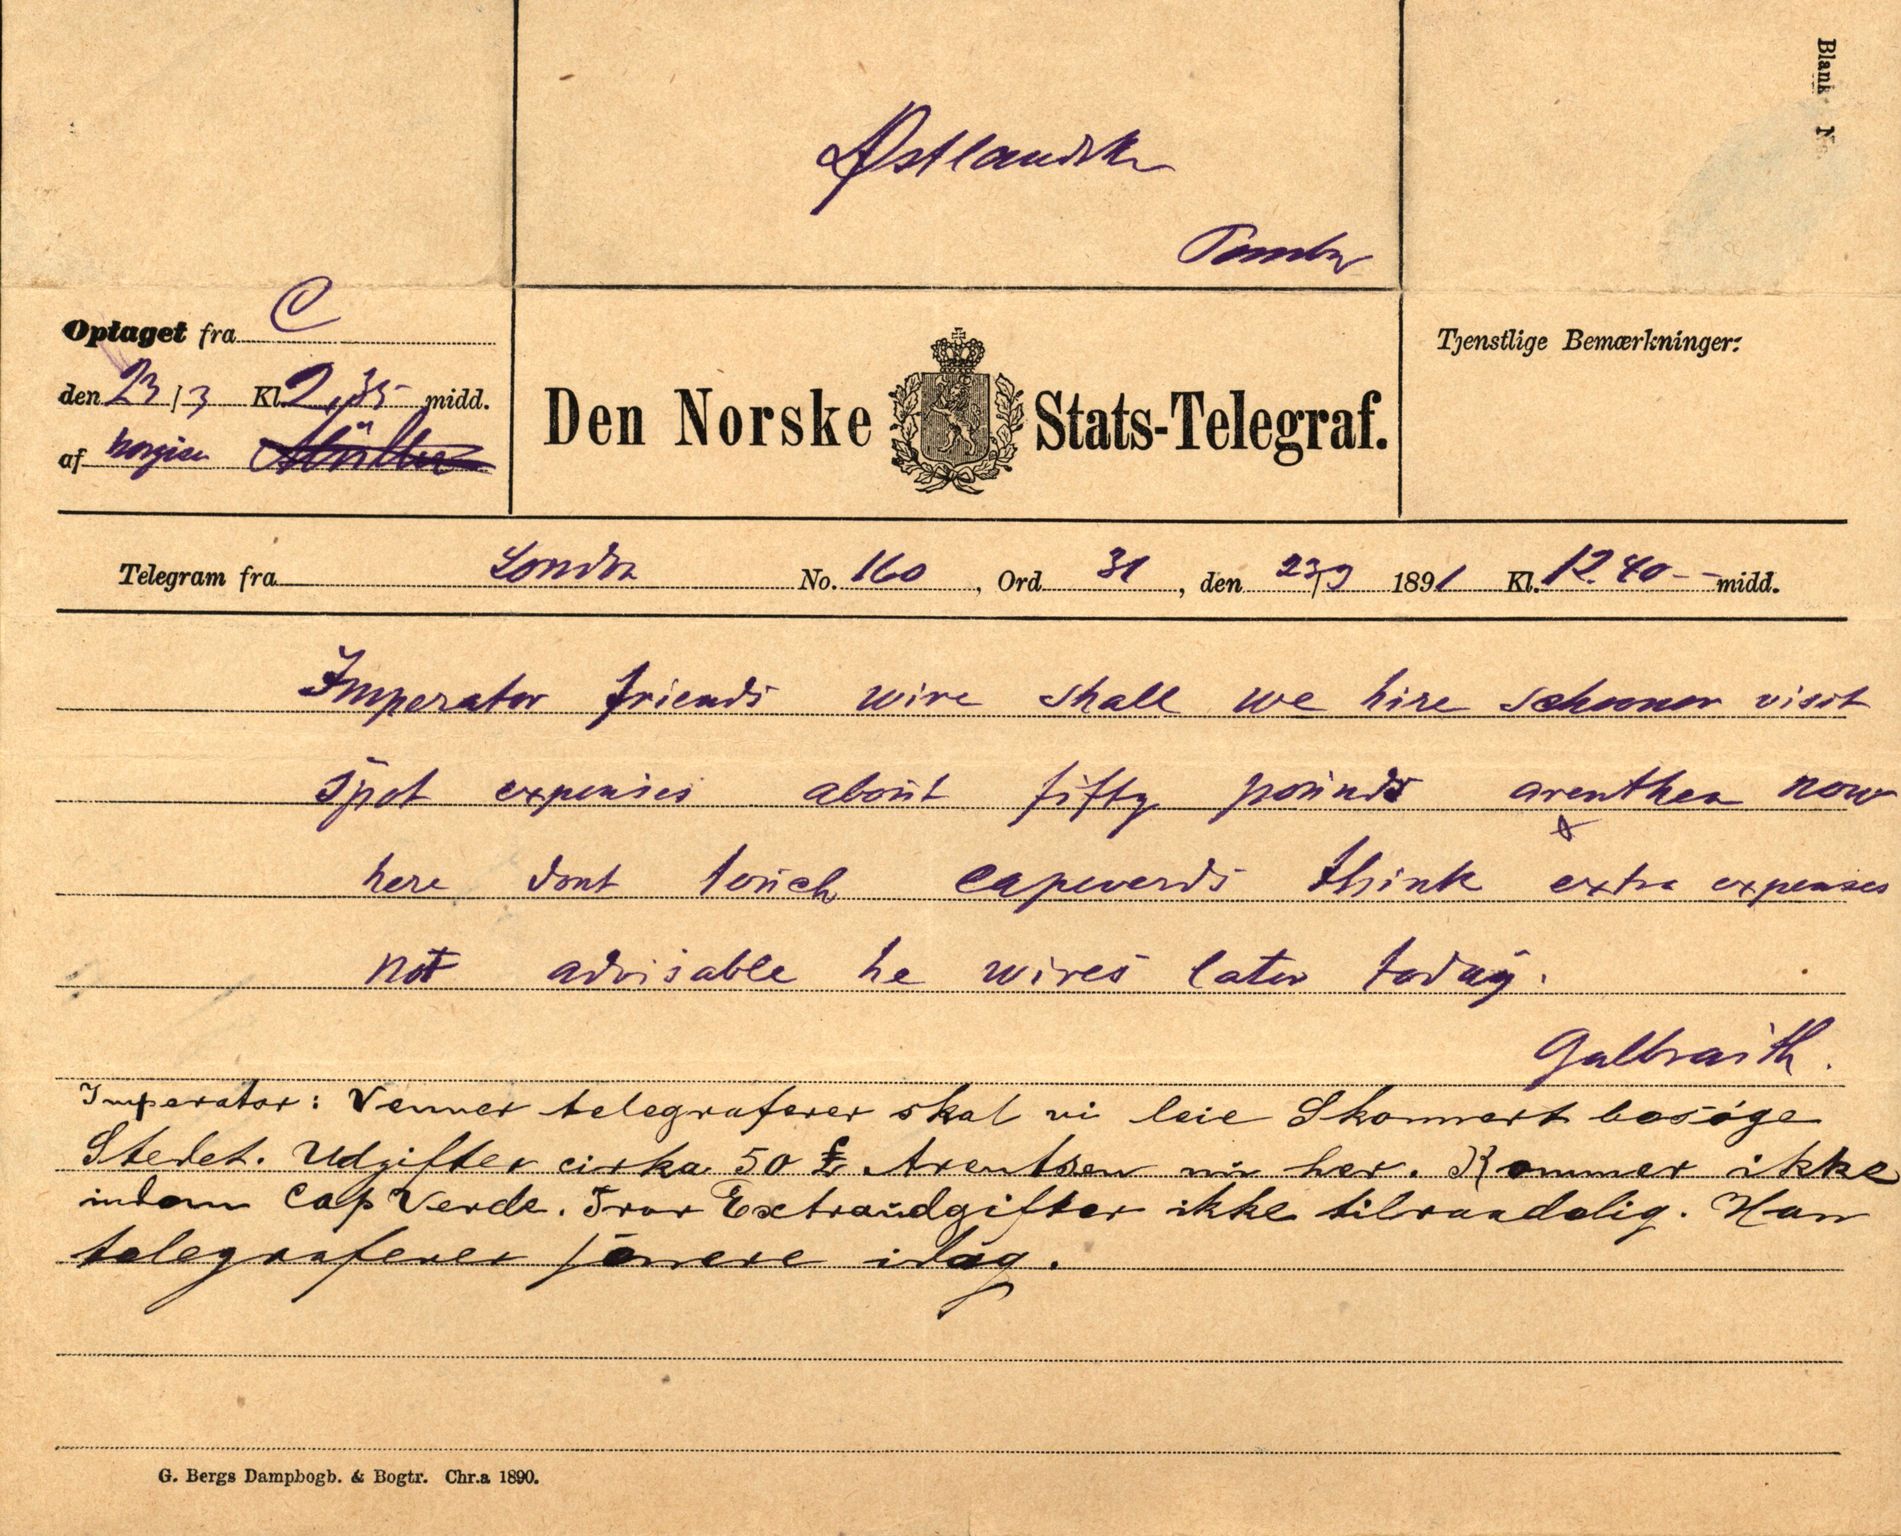 Østlandske
Blank N
Optaget fra C
den 23/3 Kl. 2,35 midd.
af
Den Norske Stats-Telegraf.
Tjenstlige Bemærkninger:
Telegram fra London No. 160, Ord 31, den 23/3 1891 Kl. 12.40 - - midd.
Imperator friends wire shall we hire schooner visit
spot expenses about fifty pounds arenthen now
x
here dont touch capeverds think extra expenses
not advisable he wires later today.
Galbraith.
Imperator: Venner telegraferer skal vi leie Skonnert besöge
Stedet. Udgifter cirka 50 £. Arentsen nu her. Kommer ikke
indom Cap Verde. Tror Extraudgifter ikke tilraadelig. Han
telegraferer senere idag.
G. Bergs Dampbogb. & Bogtr. Chr.a 1890.